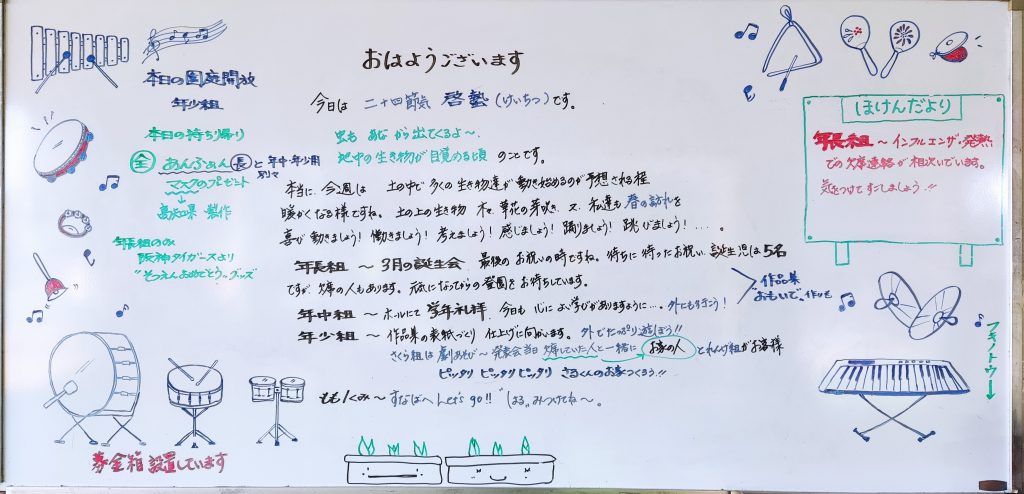 おはようございます
今日は 二十四節気 啓蟄(けいちつ)です。
虫も あな から出てくるよ〜、
地中の生き物が目覚める頃 のことです。
本当に、今週は 土の中で多くの生き物達が動き始めるのが予想される程
暖かくなる様ですね。土の上の生き物 木々 草花の芽吹き 又、私達も 春の訪れを
喜び動きましょう! 働きましょう! 考えましょう! 感じましょう! 踊りましょう! 跳びましょう! ・・・。
年長組 〜 3月の誕生会 最後のお祝いの時ですね。待ちに待ったお祝い 誕生児は5名
ですが、欠席の人もあります。元気になってからの登園をお待ちしています。
年中組 〜 ホールにて 学年礼拝 今日も 心に よい学びがありますように…。外にも行こう!
年少組 〜 作品集の表紙づくり 仕上げに向かいます。外でたっぷり遊ぼう!!
さくら組は 劇あそび〜発表会当日 欠席していた人と一緒に お家の人 とれんげ組がお客様
ピッタリ ピッタリ ピッタリ さるくんのお家つくろう!!
もも1くみ〜 すなばへ Let's go!! "はる"みつけてね〜。
作品集
おもいで。作りを
本日の園庭開放
年少組
本日の持ち帰り
全 あんふぁん 長 と 年中・年少用
別々
マスクのプレゼント
高知県 製作
年長組のみ
阪神タイガースより
"そつえんおめでとう"グッズ
募金箱 設置しています
ほけんだより
年長組 〜 インフルエンザ・発熱
での欠席連絡が相次いでいます。
気をつけてすごしましょう!!
フキノトウ→